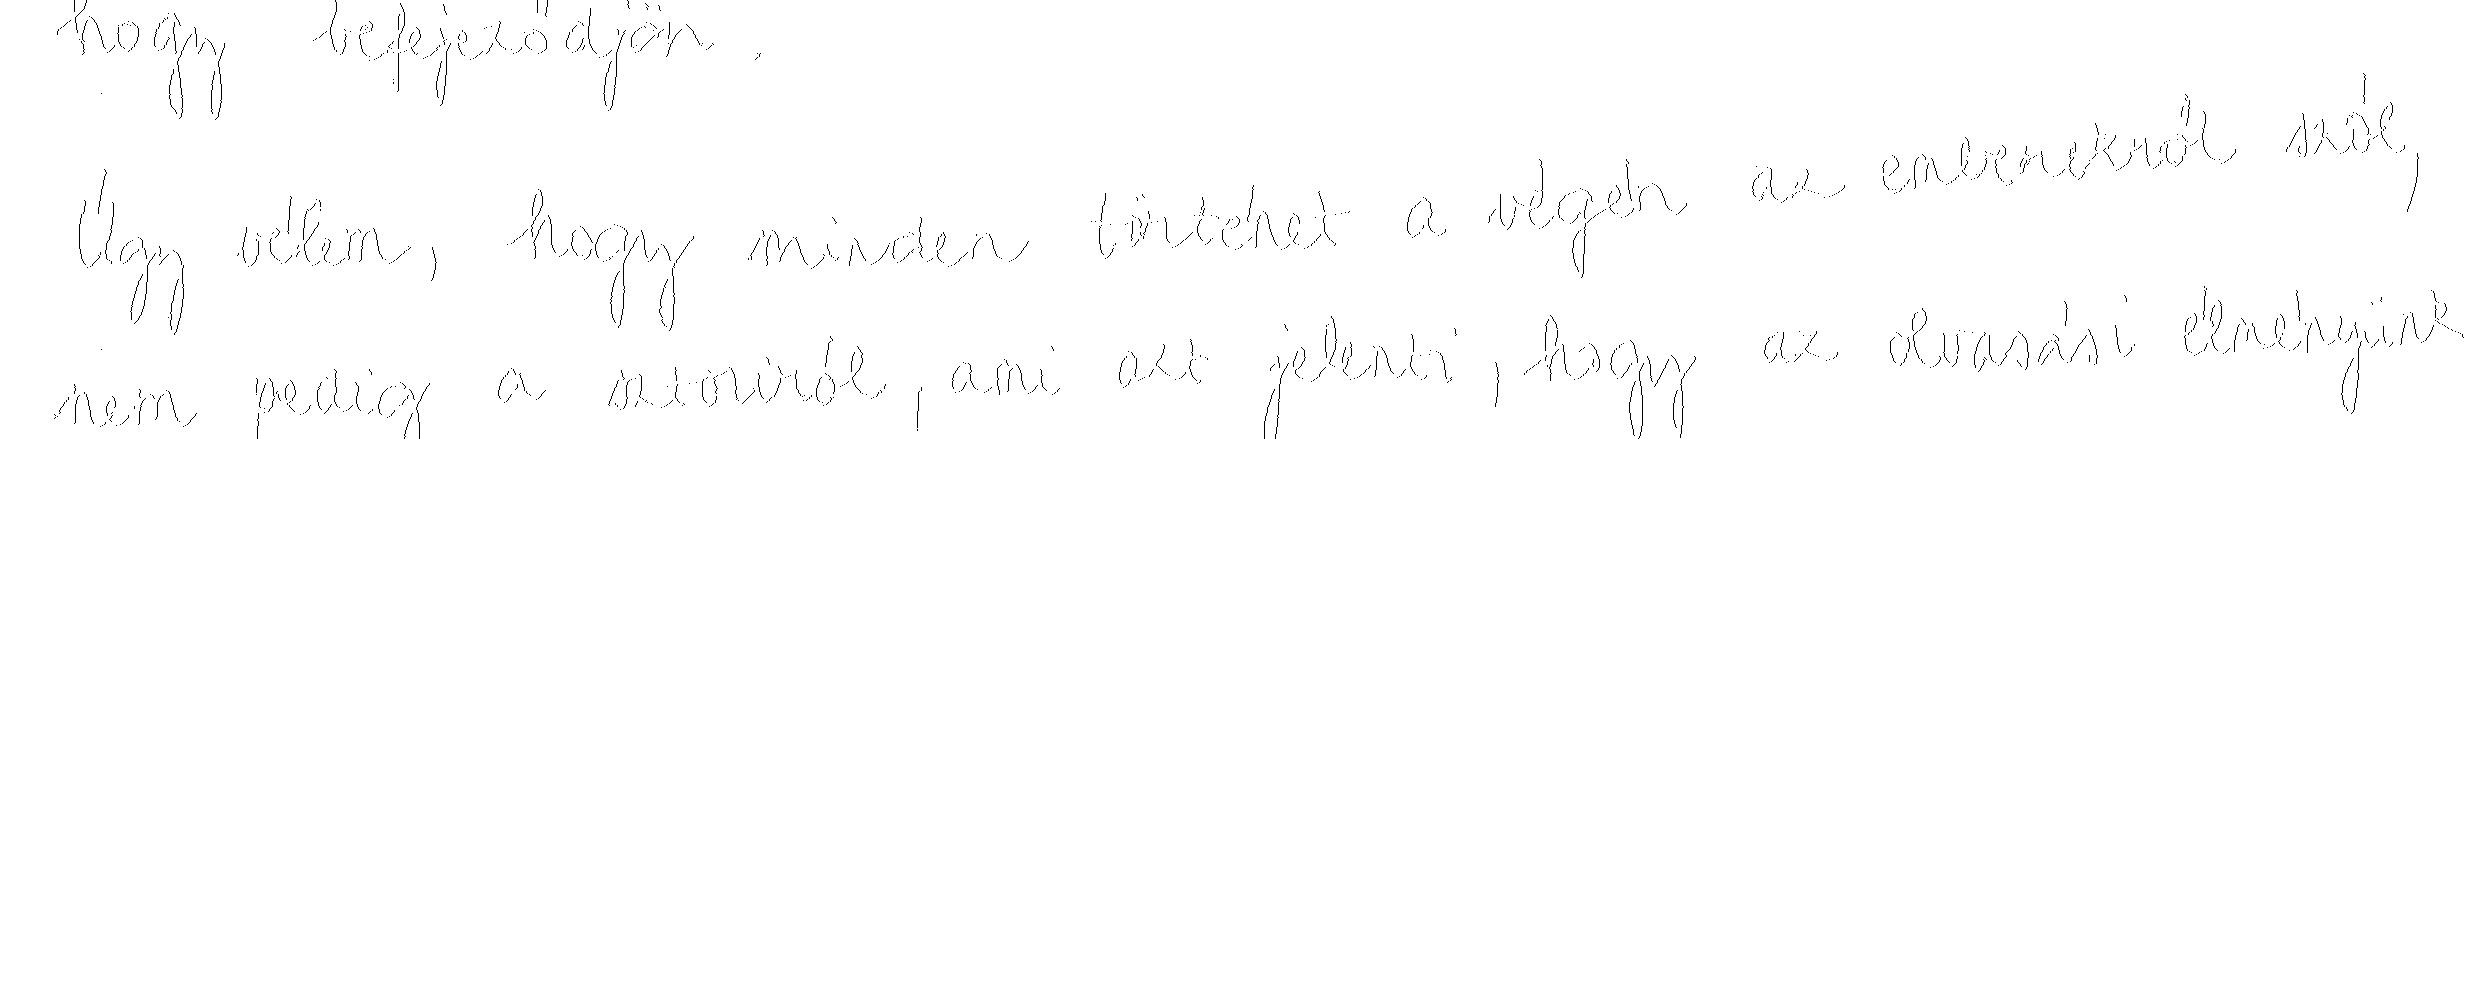 hogy befejeződjön.
Úgy vélem, hogy minden történet a végén az emberekről szól,
nem pedig a sztoriról, ami azt jelenti, hogy az olvasási élményünk